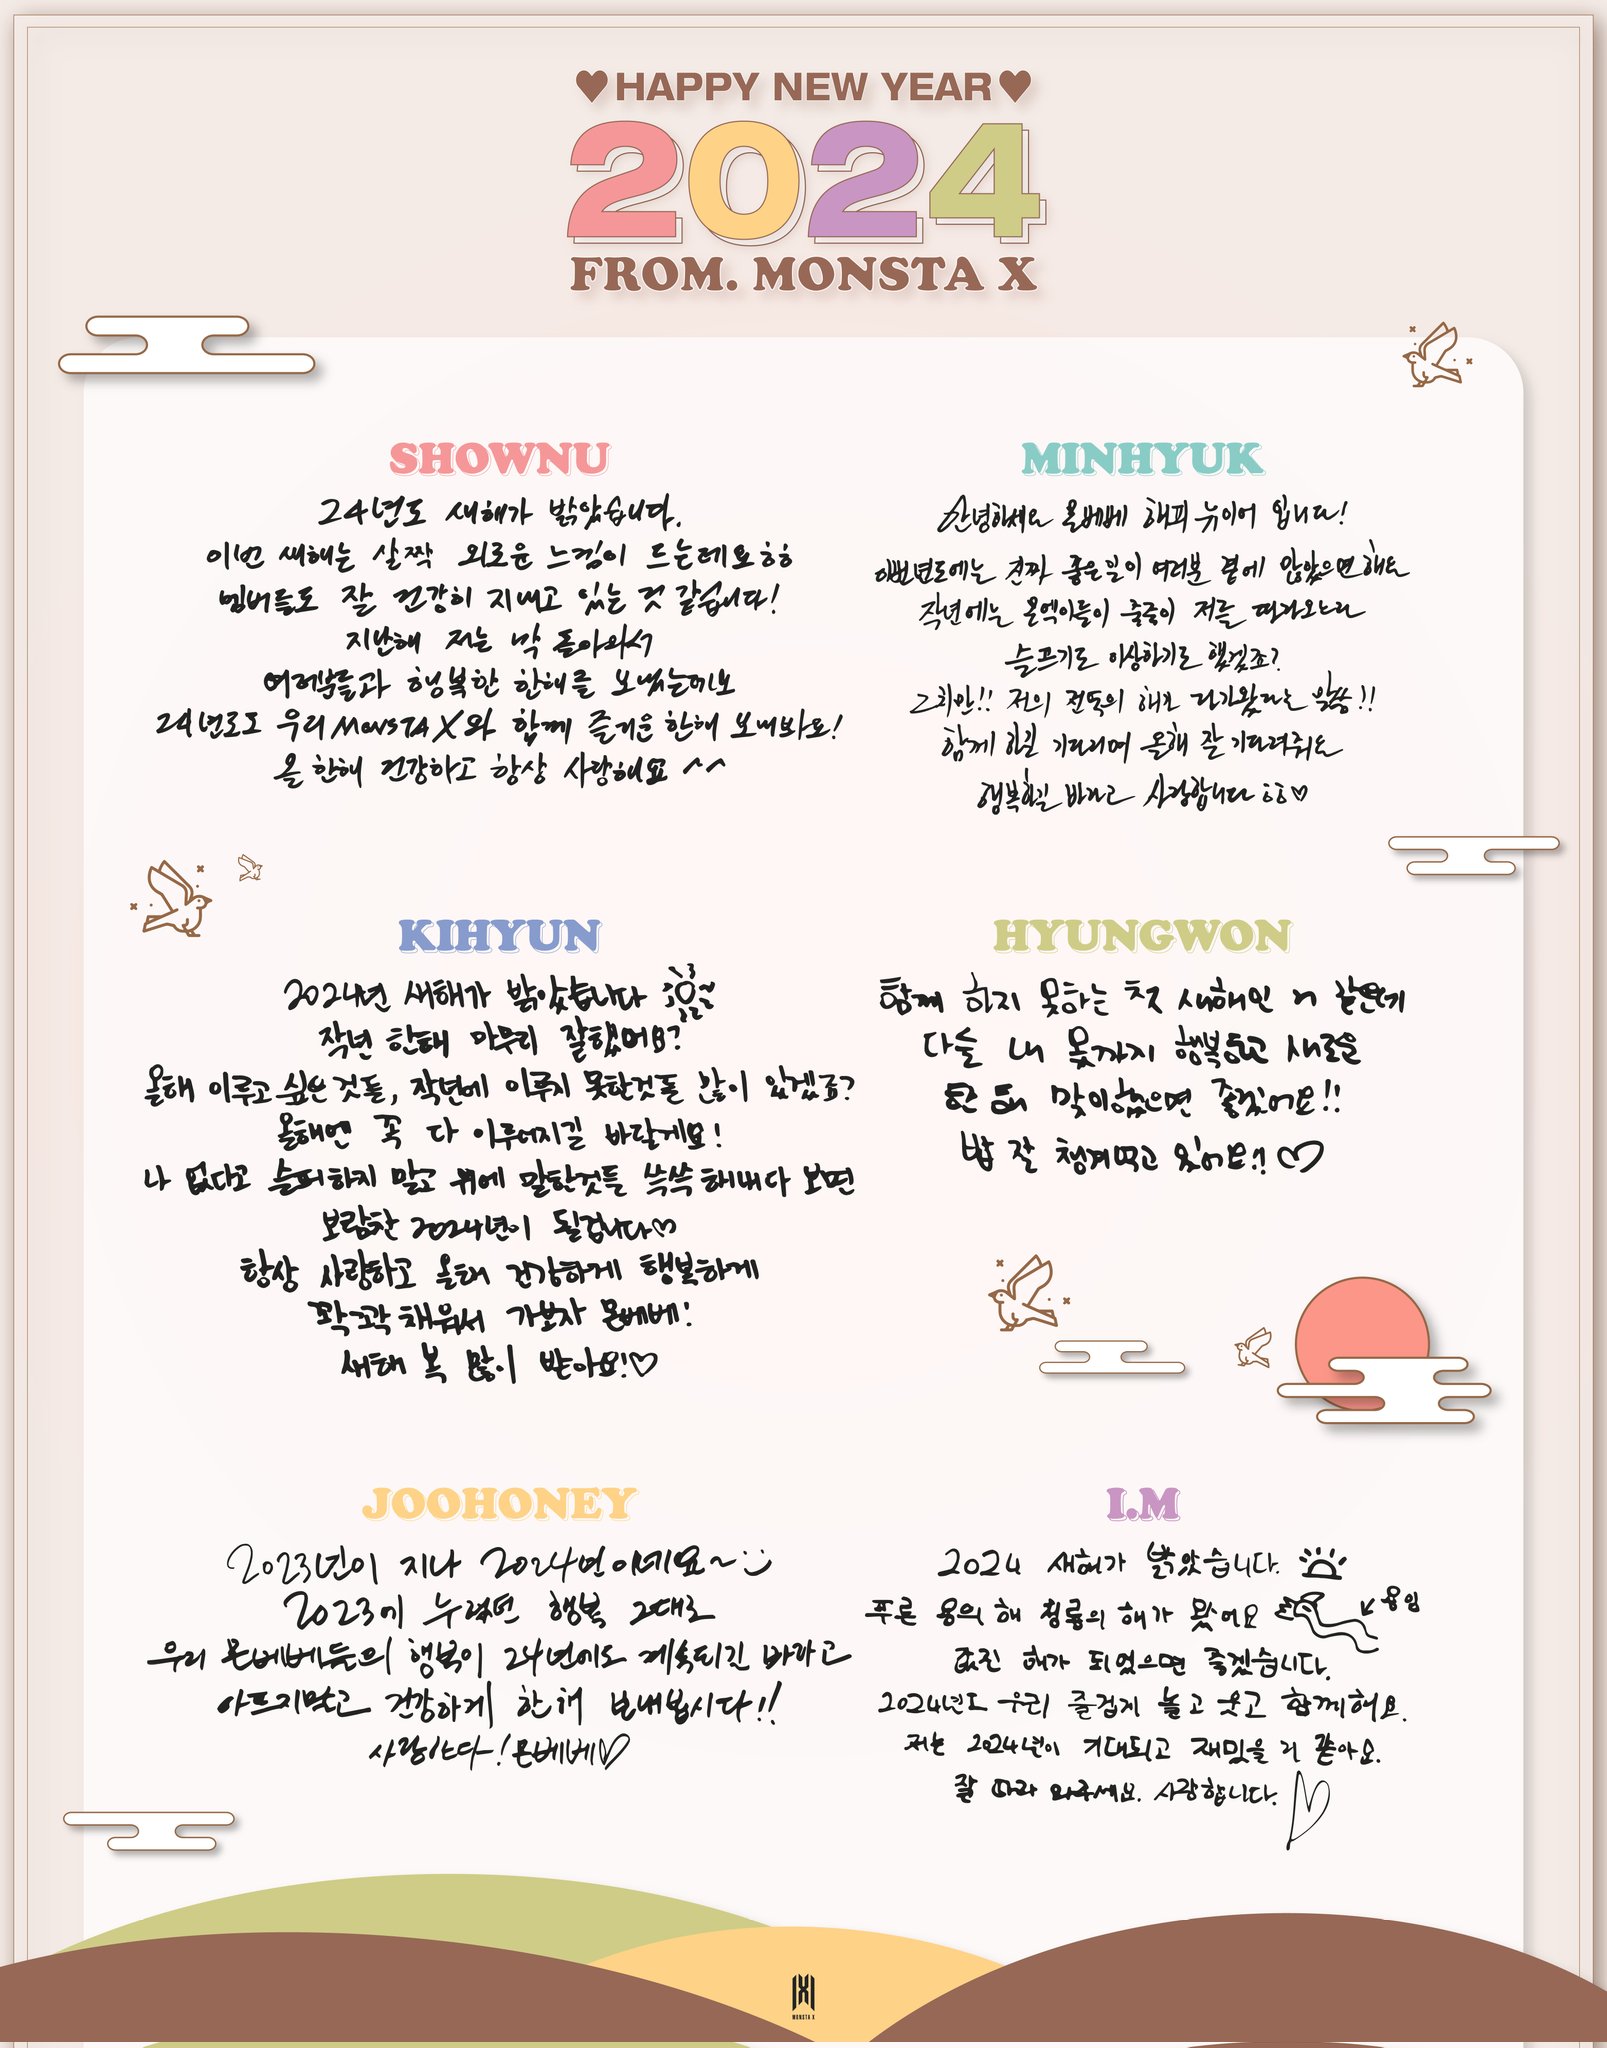 ♥HAPPY NEW YEAR♥
2024
FROM. MONSTA X
SHOWNU
24년도 새해가 밝았습니다.
이번 새해는 살짝 외로운 느낌이 드는데요ㅎㅎ
멤버들도 잘 건강히 지내고 있는 것 같습니다!
지난해 저는 막 돌아와서
여러분들과 행복한 한해를 보냈는데요
24년로도 우리 MONSTA X와 함께 즐거운 한해 보내봐요!
올 한해 건강하고 항상 사랑해요 ^^
MINHYUK
안녕하세요 몬베베 해피 뉴이어 입니다!
이번년도에는 진짜 좋은일이 여러분 곁에 많았으면 해요
작년에는 몬엑이들이 줄줄이 저를 따라오느라
슬프기도 이상하기도 했겠죠?
그치만!! 저의 전역의 해가 다가왔다는 말씀!!
함께 하길 기다리며 올해 잘 기다려줘요
행복하길 바라고 사랑합니다 ㅎㅎ♡
KIHYUN
2024년 새해가 밝았습니다
작년 한해 마무리 잘했어요?
올해 이루고 싶은 것들, 작년에 이루지 못한것들 많이 있겠죠?
올해엔 꼭 다 이루어지길 바랄게요!
나 없다고 슬퍼하지 말고 위에 말한것들 쓱쓱 해내다 보면
보람찬 2024년이 될겁니다♡
항상 사랑하고 올해 건강하게 행복하게
꽉꽉 채워서 가보자 몬베베!
새해 복 많이 받아요!♡
HYUNGWON
함께 하지 못하는 첫 새해인 거 같은데
다들 내 몫까지 행복하고 새로운
한 해 맞이했으면 좋겠어요!!
밥 잘 챙겨먹고 있어요?! ♡
JOOHONEY
2023년이 지나 2024년이네요~:)
2023에 누렸던 행복 그대로
우리 몬베베들의 행복이 24년에도 계속되길 바라고
아프지말고 건강하게 한해 보내봅시다!!
사랑한다-! 몬베베♡
I.M
2024 새해가 밝았습니다.
푸른 용의 해 청룡의 해가 왔어요 용임
값진 해가 되었으면 좋겠습니다.
2024년도 우리 즐겁게 놀고 웃고 함께해요.
저는 2024년이 기대되고 재밌을 거 같아요.
잘 따라 와주세요. 사랑합니다. ♡
MONSTA X